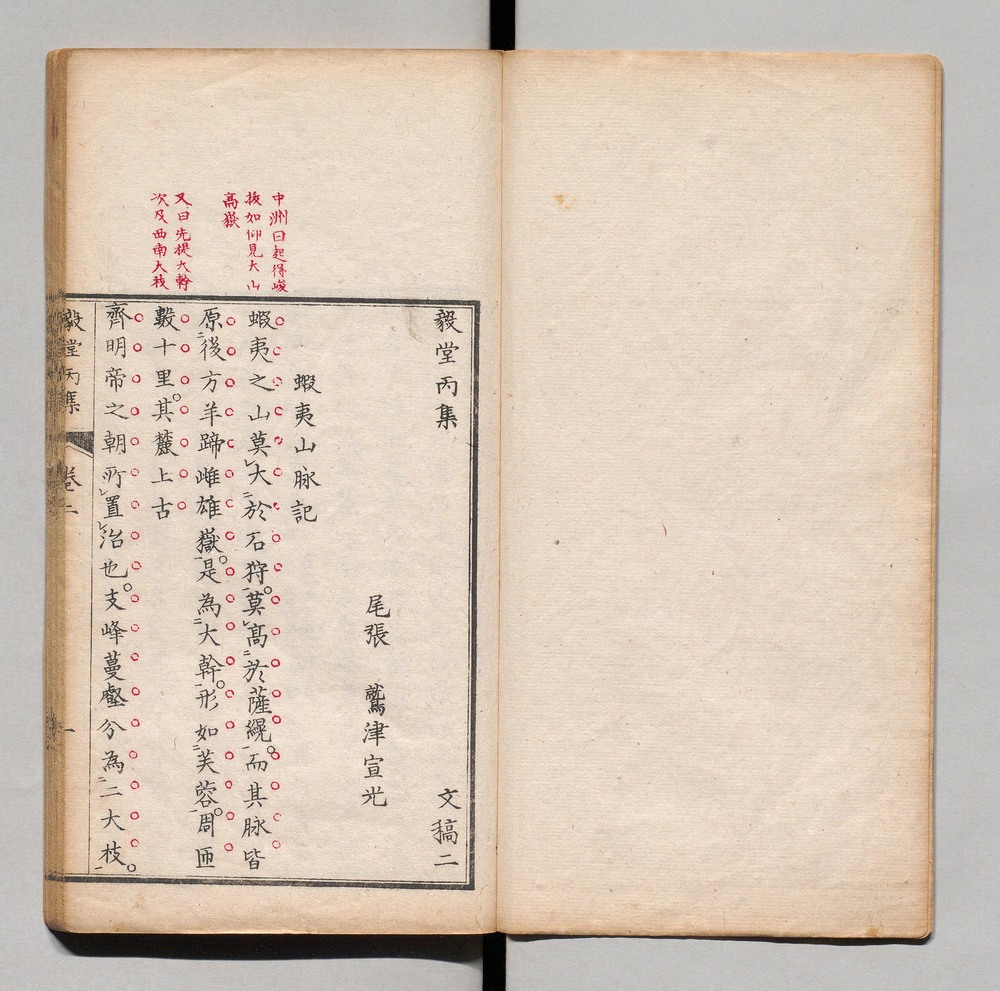 中洲曰起得峻
拔如仰見大山
高嶽
又曰先提大幹
次及西南大枝
毅堂丙集
文稿二
尾張 鷲津宣光
蝦夷山脉記
蝦夷之山莫大於石狩。莫高於薩縨。而其脉皆
原後方羊蹄雌雄嶽。是為大幹。形如芙蓉。周匝
數十里。其麓上古
齊明帝之朝所置治也。支峰蔓壑分為二大枝。
毅堂丙集 卷二 一